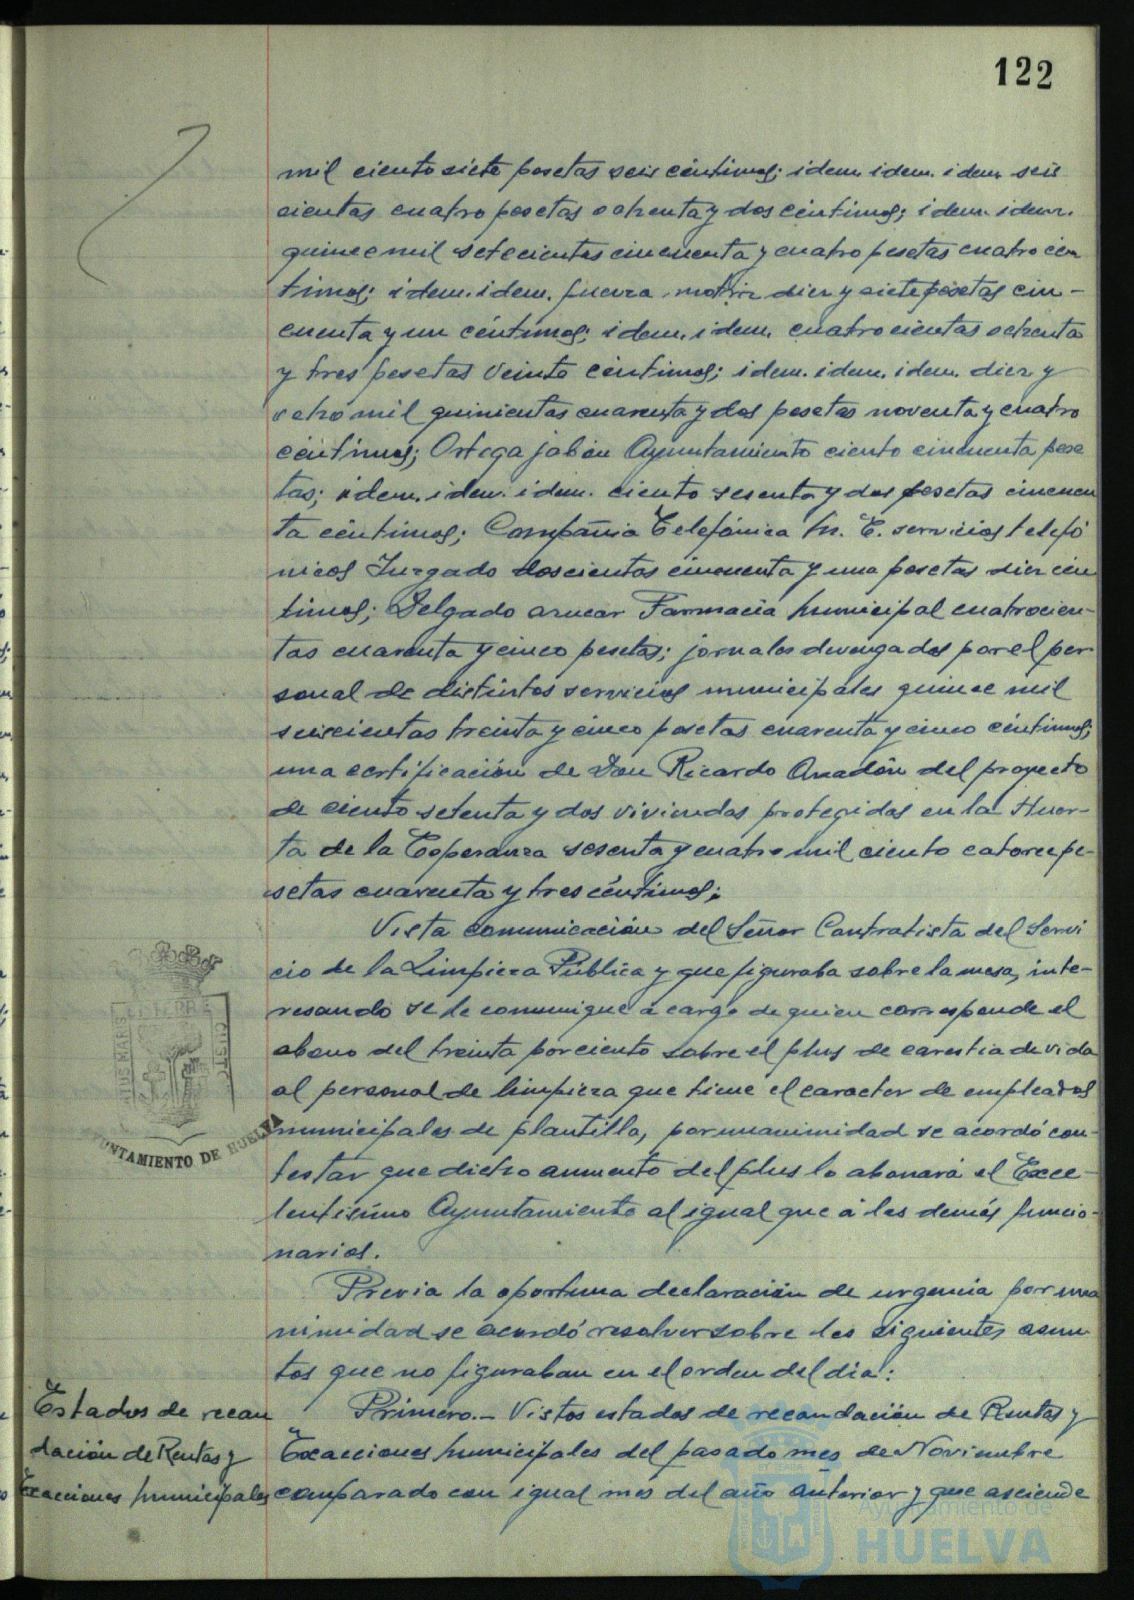 122
mil ciento siete pesetas seis céntimos; idem. idem. idem seis
cientas cuatro pesetas ochenta y dos céntimos; idem. idem.
quince mil setecientas cincuenta y cuatro pesetas cuatro cén
timos; idem. idem. fuerza motriz diez y siete pesetas cin-
cuenta y un céntimos; idem. idem. cuatrocientas ochenta
y tres pesetas veinte céntimos; idem. idem. idem. diez y
ocho mil quinientas cuarenta y dos pesetas noventa y cuatro
céntimos; Ortega jabón Ayuntamiento ciento cincuenta pese
tas; idem. idem. idem. ciento sesenta y dos pesetas cincuen
ta céntimos; Compañia Telefónica N. E. servicios telefó
nicos Juzgado doscientas cincuenta y una pesetas diez cén
timos; Delgado azucar Farmacia Municipal cuatrocien-
tas cuarenta y cinco pesetas; jornales devengados por el per
sonal de distintos servicios municipales quince mil
seiscientas treinta y cinco pesetas cuarenta y cinco céntimos;
una certificación de Don Ricardo Anadón del proyecto
de ciento setenta y dos viviendas protegidas en la Huer-
ta de la Esperanza sesenta y cuatro mil ciento catorce pe-
setas cuarenta y tres céntimos;
Vista comunicación del Señor Contratista del Servi
cio de la Limpieza Pública y que figuraba sobre la mesa, inte-
resando se le comunique a cargo de quien corresponde el
abono del treinta por ciento sobre el plus de carestia de vida
al personal de limpieza que tiene el caracter de empleados
municipales de plantilla, por unanimidad se acordó con-
testar que dicho aumento del plus lo abonará el Exce-
lentísimo Ayuntamiento al igual que á los demás funcio-
narios.
AYUNTAMIENTO DE HUELVA
Previa la oportuna declaración de urgencia por una
nimidad se acordó resolver sobre los siguientes asun-
tos que no figuraban en el orden del dia:
Estados de recau
dación de Rentas y
Exacciones Municipales
Primero.- Vistos estados de recaudación de Rentas y
Exacciones Municipales del pasado mes de Noviembre
comparado con igual mes del año anterior y que asciende
Ayuntamiento de
HUELVA